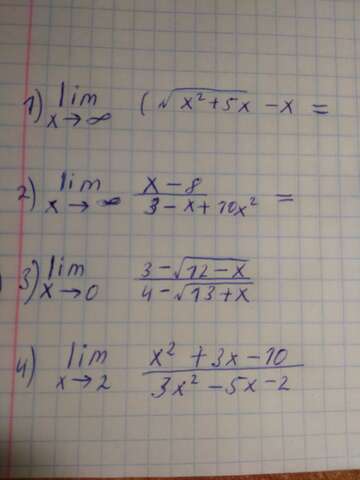 1) lim x→∞ (√(x²+5x) -x =
2) lim x→∞ (x-8)/(3-x+10x²) =
3) lim x→0 (3-√(12-x))/(4-√(13+x))
4) lim x→2 (x²+3x-10)/(3x²-5x-2)